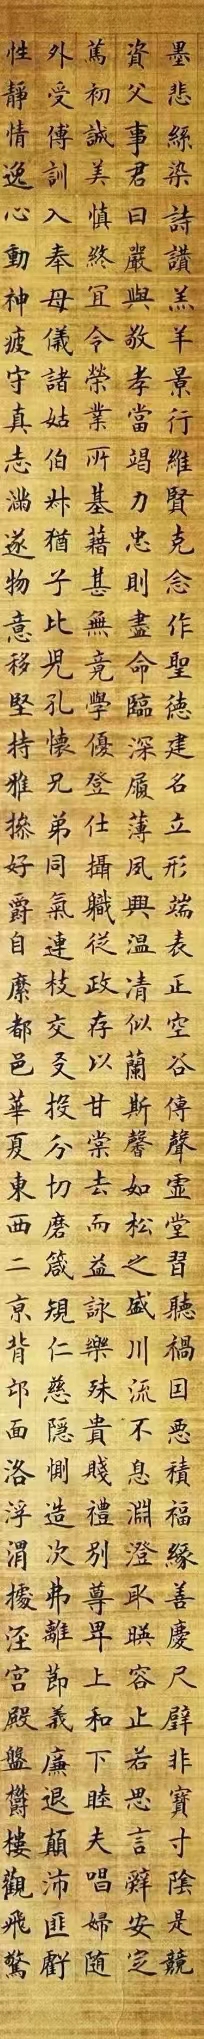 墨悲絲染詩讚羔羊景行維賢克念作聖徳建名立形端表正空谷傳聲虛堂習聽禍因惡積福緣善慶尺璧非寶寸陰是競
資父事君曰嚴與敬孝當竭力忠則盡命臨深履薄夙興温清似蘭斯馨如松之盛川流不息淵澄取暎容止若思言辭安定
篤初誠美慎終宜令榮業所基藉甚無竟學優登仕攝職從政存以甘棠去而益詠樂殊貴賤禮別尊卑上和下睦夫唱婦随
外受傅訓入奉母儀諸姑伯叔猶子比兒孔懷兄弟同氣連枝交友投分切磨箴規仁慈隱惻造次弗離節義廉退顛沛匪虧
性靜情逸心動神疲守真志滿逐物意移堅持雅操好爵自縻都邑華夏東西二京背邙面洛浮渭據涇宮殿盤鬱樓觀飛驚